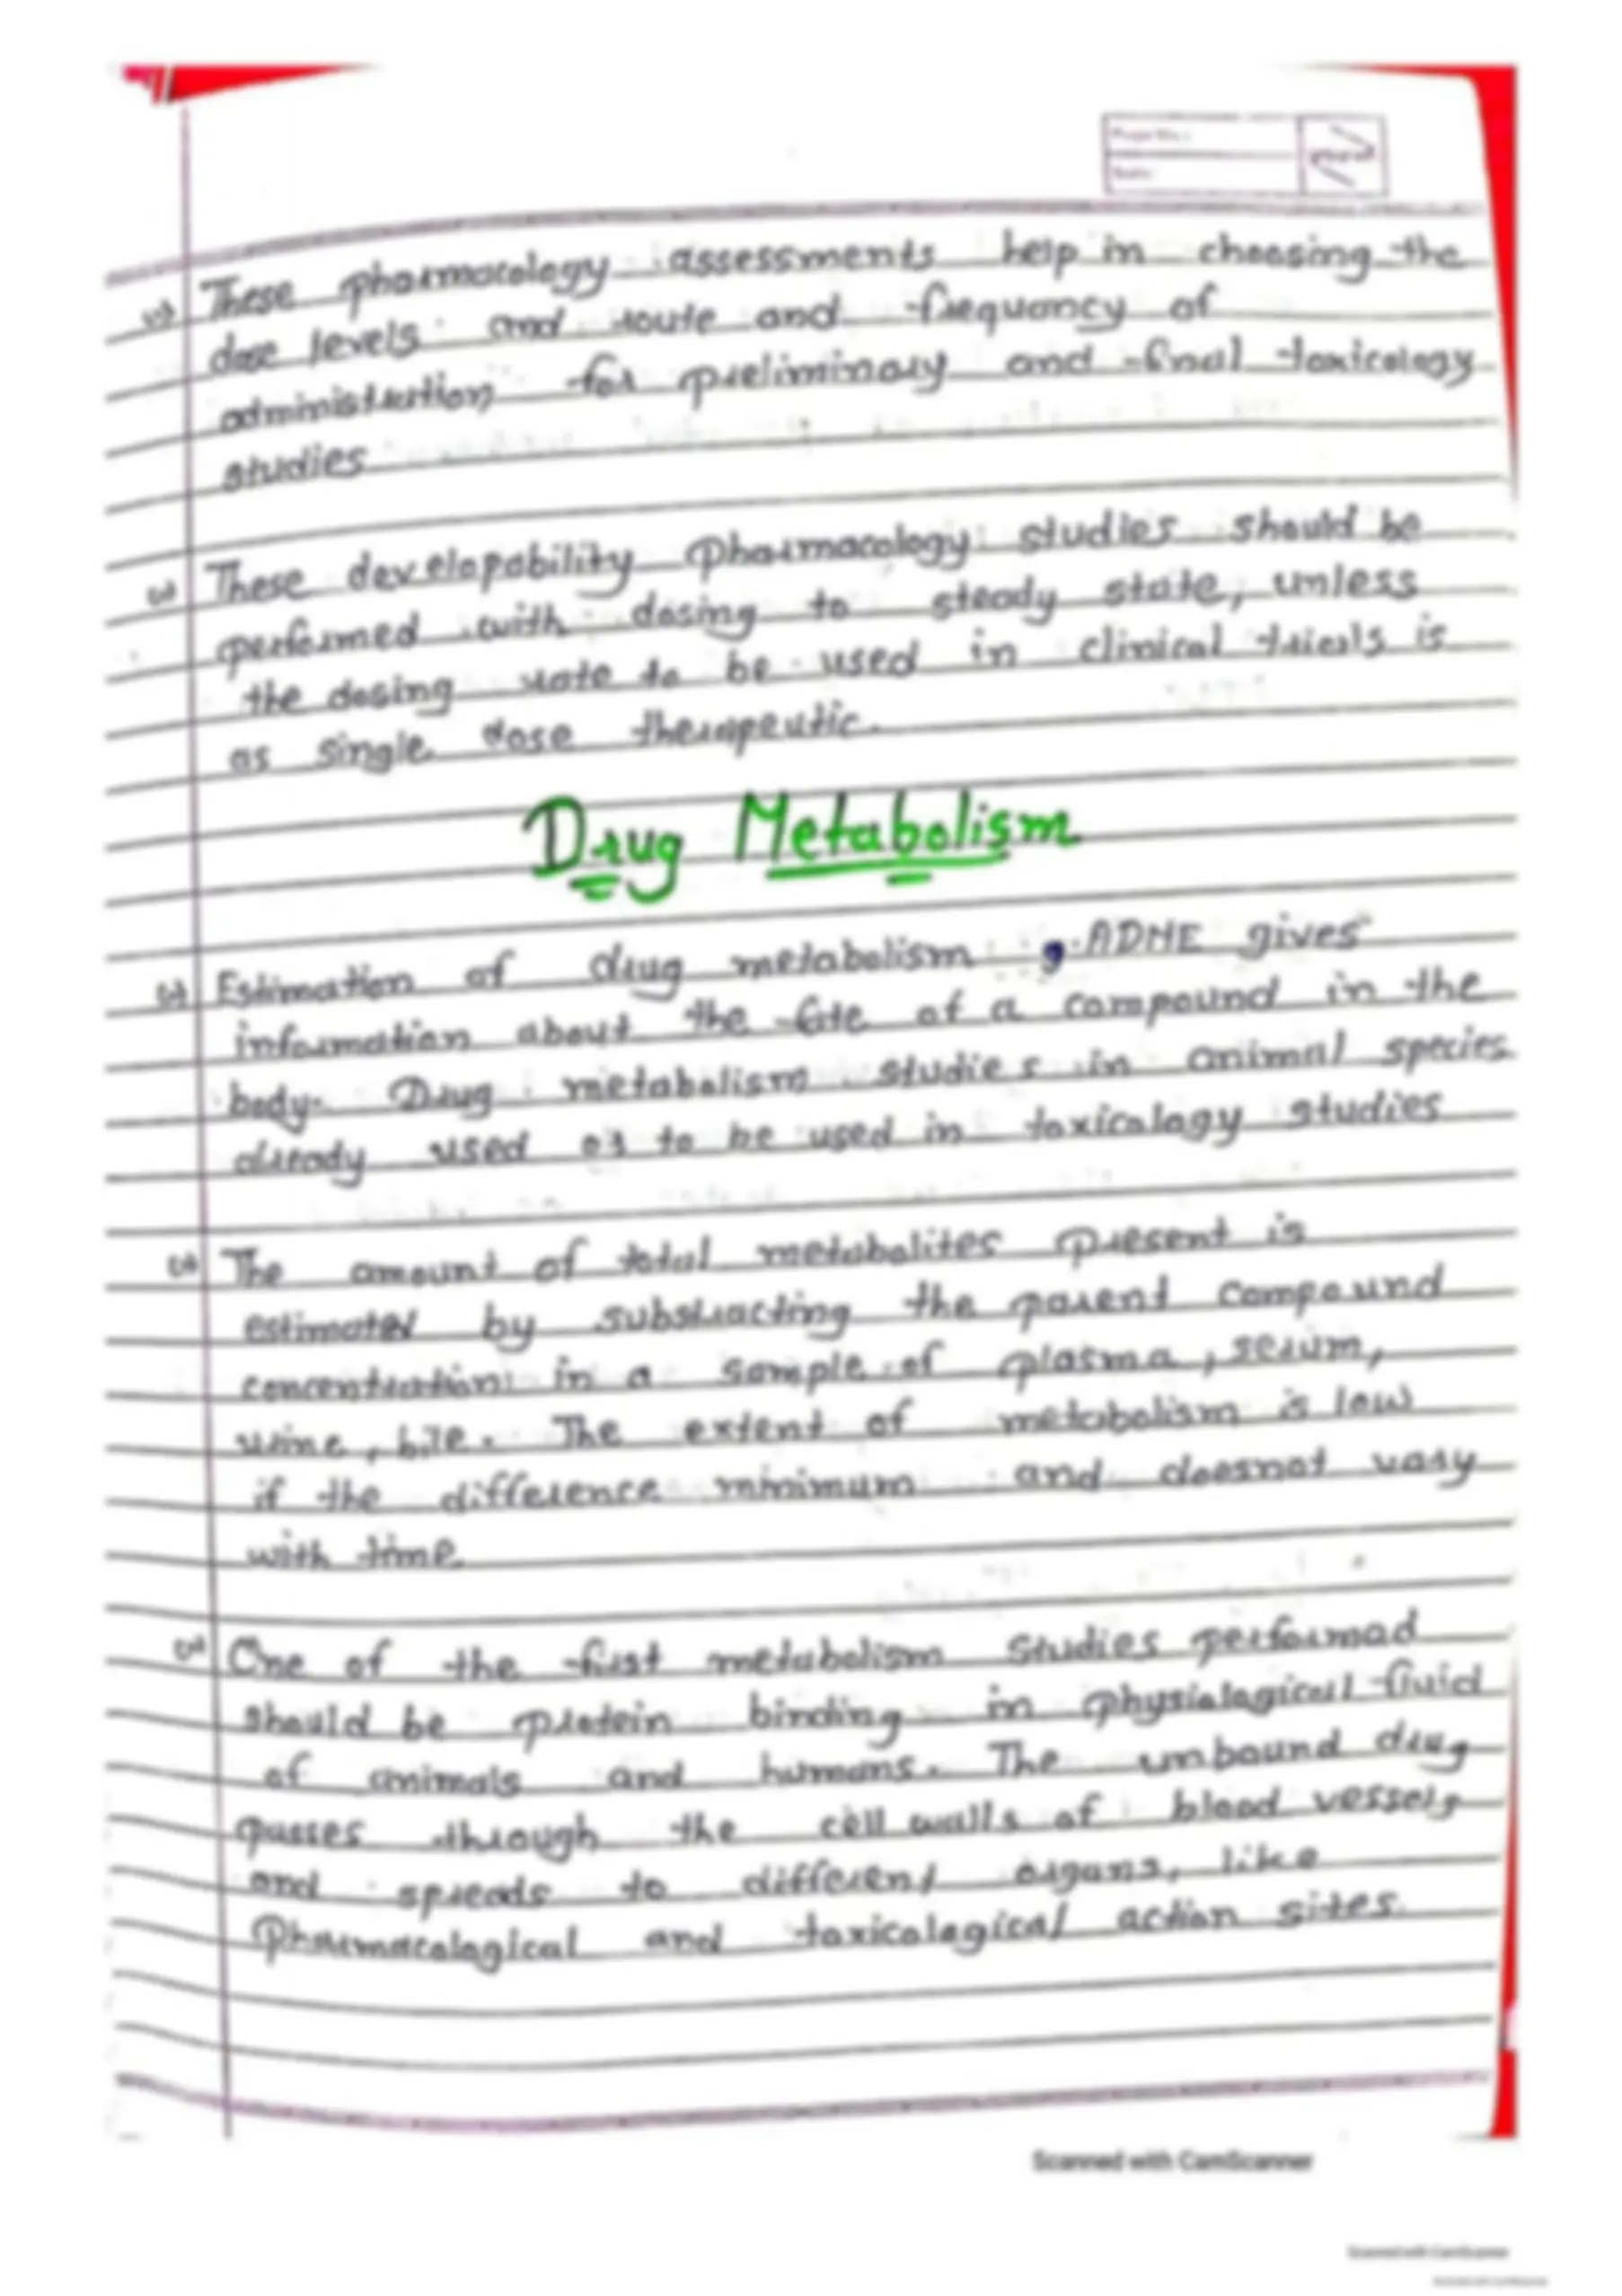 Page No.:
Date:
These pharmacology assessments help in choosing the
dose levels and route and frequency of
administration for preliminary and final toxicology
studies
These developability pharmacology studies should be
performed with dosing to steady state, unless
the dosing rate to be used in clinical trials is
as single dose therapeutic.
Drug Metabolism
Estimation of drug metabolism , ADME gives
information about the fate of a compound in the
body. Drug metabolism studies in animal species
already used or to be used in toxicology studies
The amount of total metabolites present is
estimated by substracting the parent compound
concentration in a sample of plasma, serum,
urine, bile. The extent of metabolism is low
if the difference minimum and doesnot vary
with time.
One of the first metabolism studies performed
should be protein binding in physiological fluid
of animals and humans. The unbound drug
passes through the cell walls of blood vessels
and spreads to different organs, like
Pharmacological and toxicological action sites.
Scanned with CamScanner
Scanned with CamScanner
Scanned with CamScanner